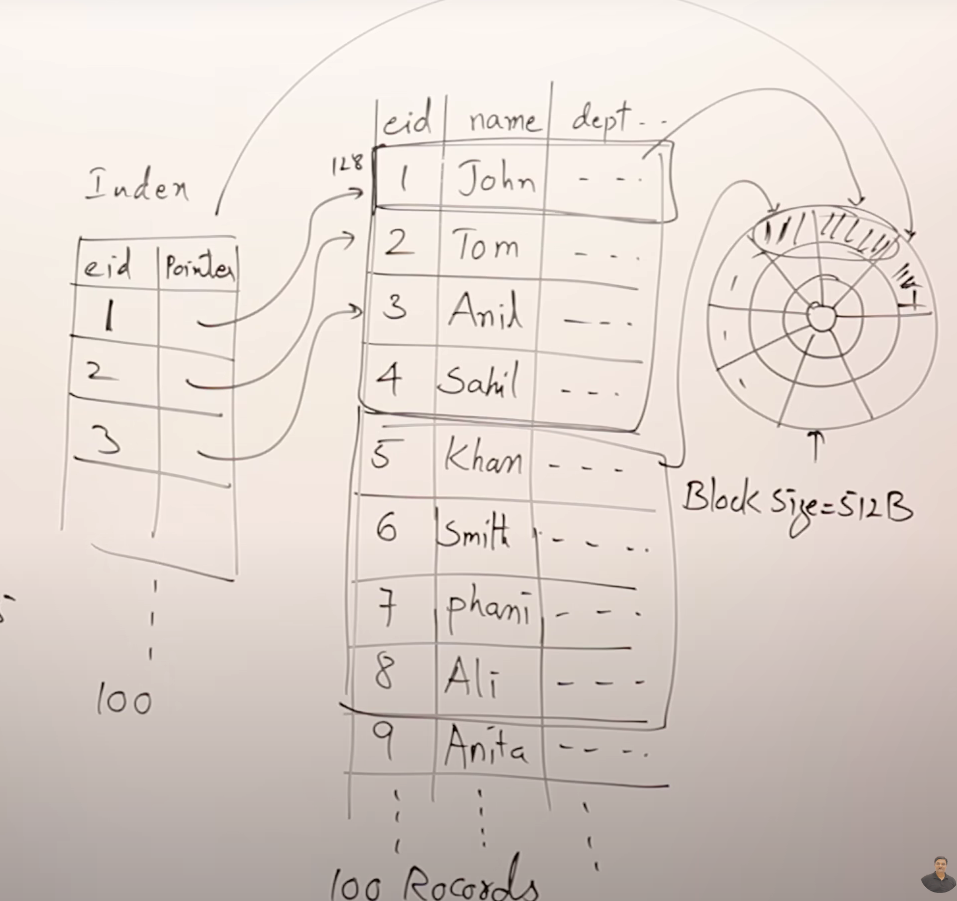 eid name dept - -
128
1 John - - -
Index
2 Tom - - -
eid Pointer
3 Anil - - -
1
4 Sahil - - -
2
3
5 Khan - - -
Block Size=512B
6 Smith - - - -
7 phani - - -
8 Ali - - -
100
9 Anita - - - -
100 Rocords